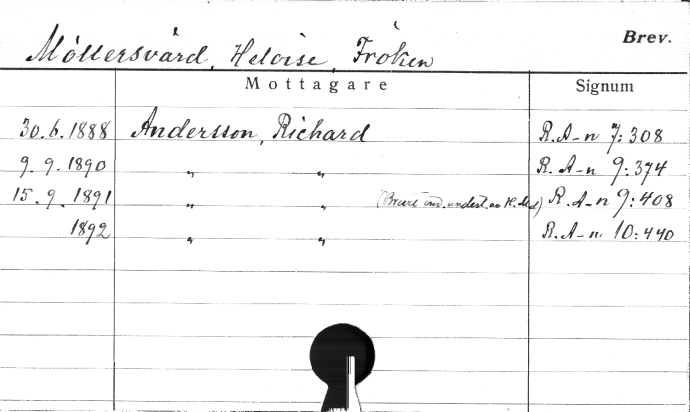 Brev.
Möllersvärd, Heloise, Fröken
Mottagare Signum
30.6.1888 Andersson, Richard R.A-n 7:308
9.9.1890 " " R.A-n 9:374
15.9.1891 " " (Brevet undert. av H. R.A-n 9:408
1892 " " R.A-n 10:440